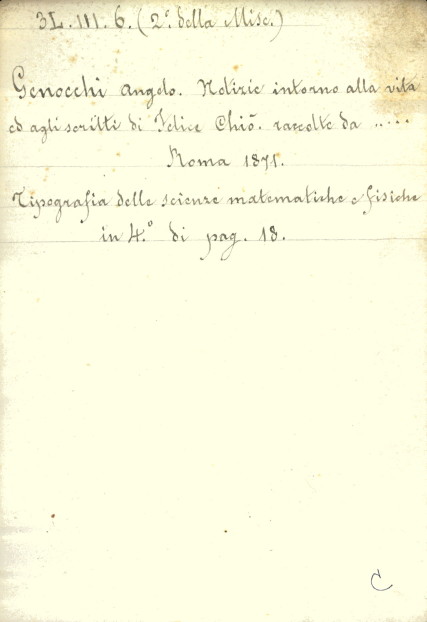 3L.III.6. (2ª della Misc.)
Genocchi Angelo. Notizie intorno alla vita
ed agli scritti di Felice Chiò. raccolte da .....
Roma 1871.
Tipografia delle scienze matematiche e fisiche
in 4.° di pag. 18.
C